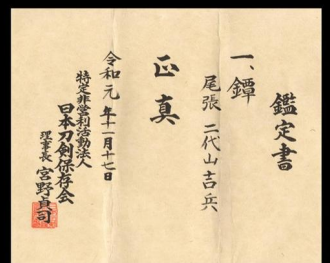 鑑定書
一、鐔
尾張 二代山吉兵
正真
令和元年十一月十七日
特定非営利活動法人
日本刀剣保存会
理事長 宮野貞司